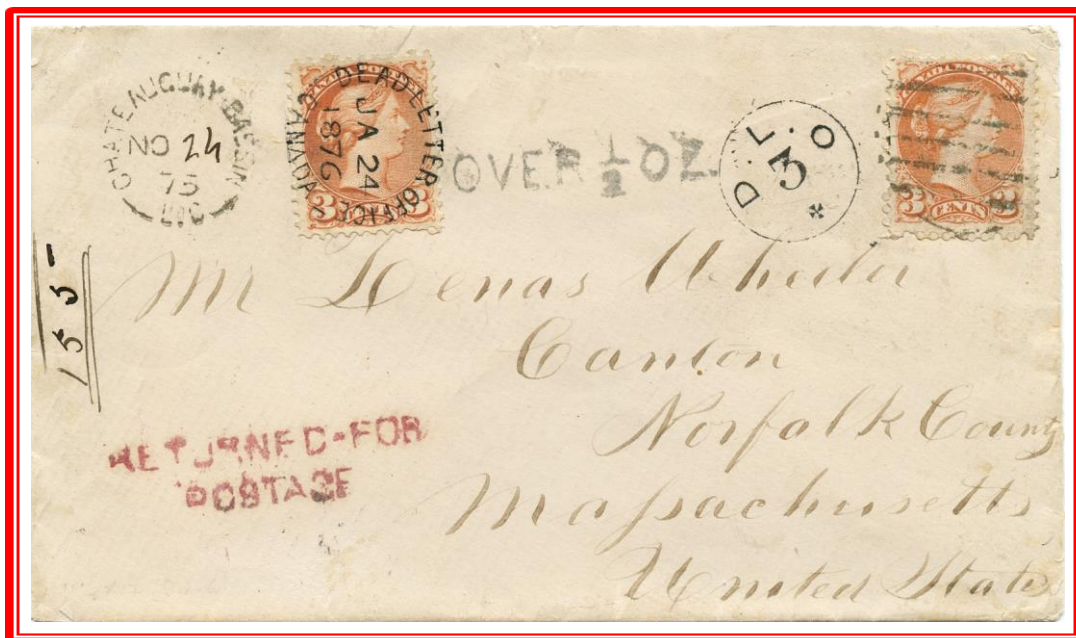 CHATEAUGUAY-BASSIN
NO 24
75
L.C
DEAD LETTER OFFICE
JA 24
1876
CANADA
CANADA POSTAGE
3 CENTS 3
OVER 1/2 OZ.
D.L.O
3
*
CANADA POSTAGE
3 CENTS 3
155-
Mr Lenas Wheeler
Canton
Norfolk County
Massachusetts
United States
RETURNED-FOR
POSTAGE